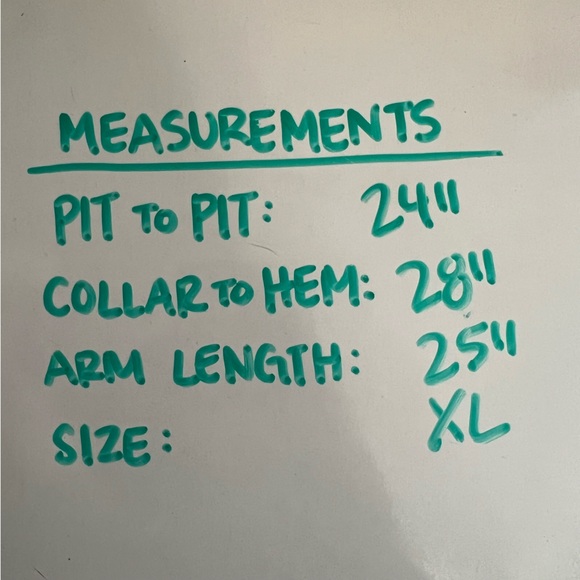 MEASUREMENTS
PIT TO PIT: 24"
COLLAR TO HEM: 28"
ARM LENGTH: 25"
SIZE: XL